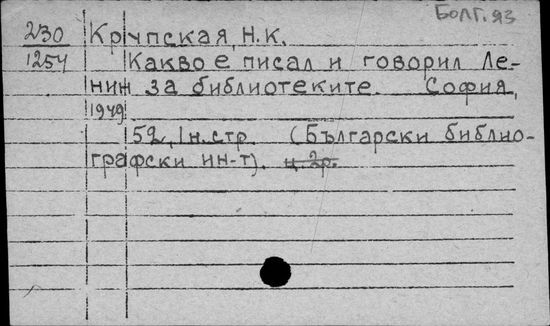 БОЛГ. ЯЗ
230 Крупская, Н.К.
1254 Какво е писал и говорил Ле-
нин за библиотеките. София,
1949
52, 1н.стр. (Български библио-
графски ин-т). ц. 2р.